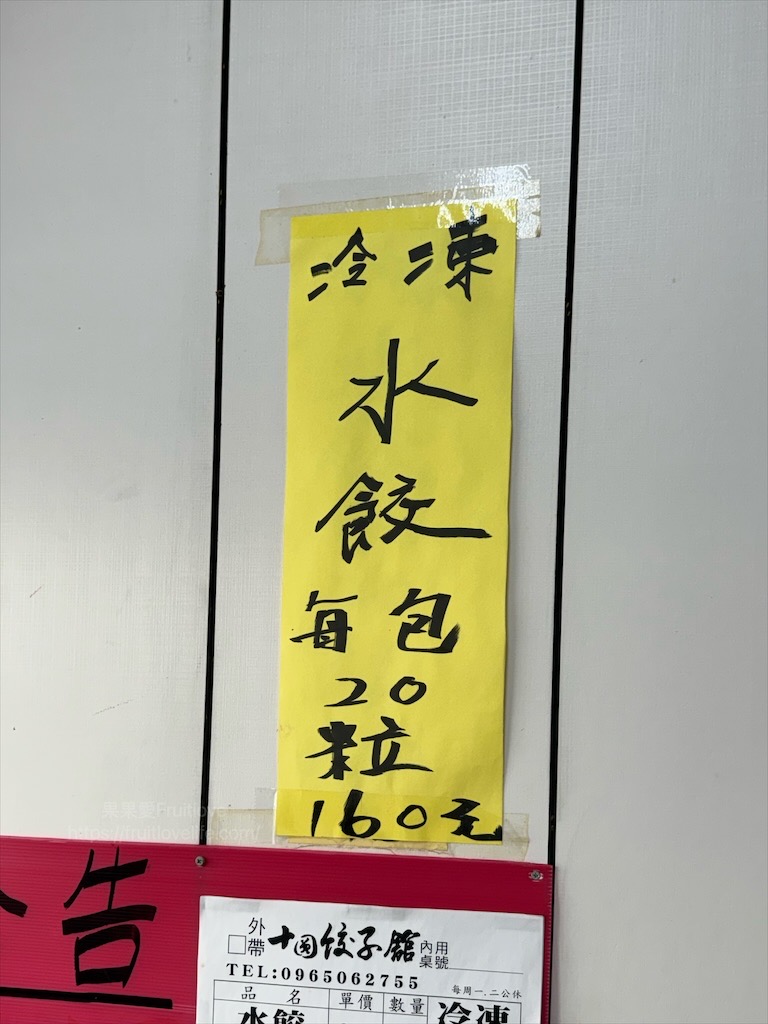 冷凍
水
餃
每包
20
粒
160元
果果愛Fruitlove
https://fruitlovelife.com/
公告
外帶 十国餃子館 內用桌號
TEL:0965062755
每周一.二公休
品名 單價 數量 冷凍
水餃